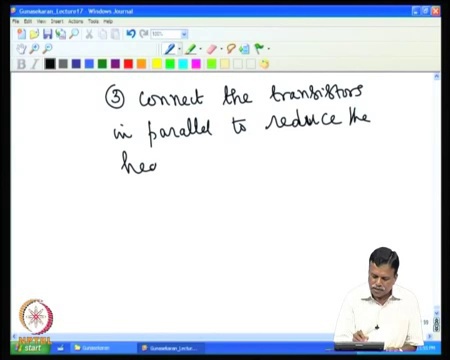 Gunasekaran_Lecture17 - Windows Journal
File Edit View Insert Actions Tools Help
100%
③ Connect the transistors
in parallel to reduce the
hea
start
Gunasekaran
Gunasekaran_Lectu...